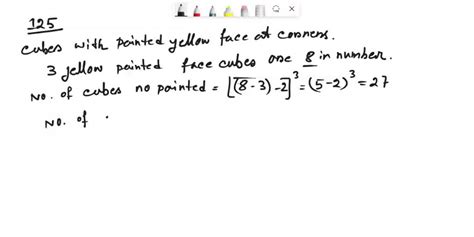 125
cubes with painted yellow face at corners.
3 yellow painted face cubes are 8 in number.
No. of cubes no painted = [(8-3)-2]³ = (5-2)³ = 27
No. of